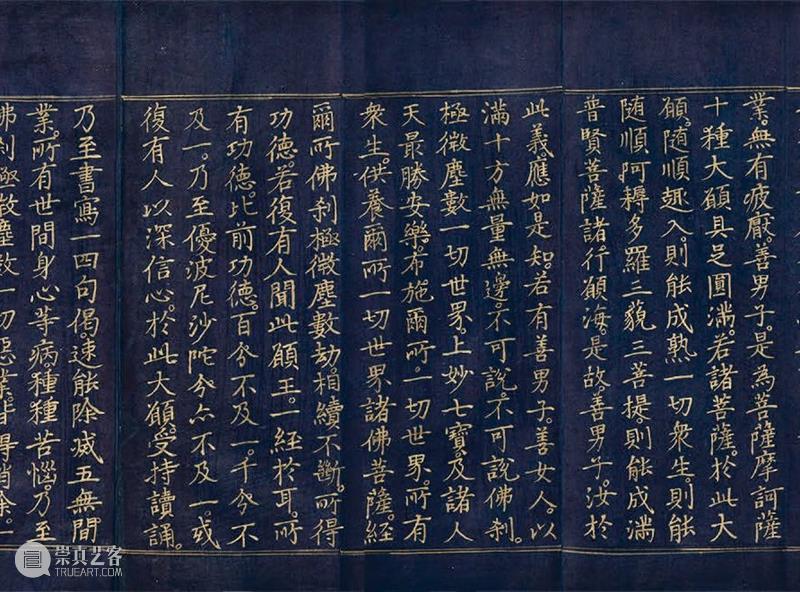 業。無有疲厭。善男子。是為菩薩摩訶薩
十種大願具足圓滿。若諸菩薩。於此大
願。随順趣入。則能成熟一切衆生。則能
随順阿耨多羅三藐三菩提。則能成滿
普賢菩薩諸行願海。是故善男子。汝於
此義。應如是知。若有善男子。善女人。以
滿十方無量無邊。不可說。不可說佛剎。
極微塵數一切世界。上妙七寶。及諸人
天最勝安樂。布施爾所。一切世界。所有
衆生。供養爾所一切世界諸佛菩薩。經
爾所佛剎極微塵數劫。相續不斷。所得
功德。若復有人聞此願王。一經於耳。所
有功德。比前功德。百分不及一。千分不
及一。乃至優波尼沙陀分亦不及一。或
復有人以深信心。於此大願。受持讀誦。
乃至書寫一四句偈。速能除滅五無間
業。所有世間身心等病。種種苦惱。乃至
佛剎極微塵數一切惡業。皆得消除。一
崇真艺客
TRUEART.COM